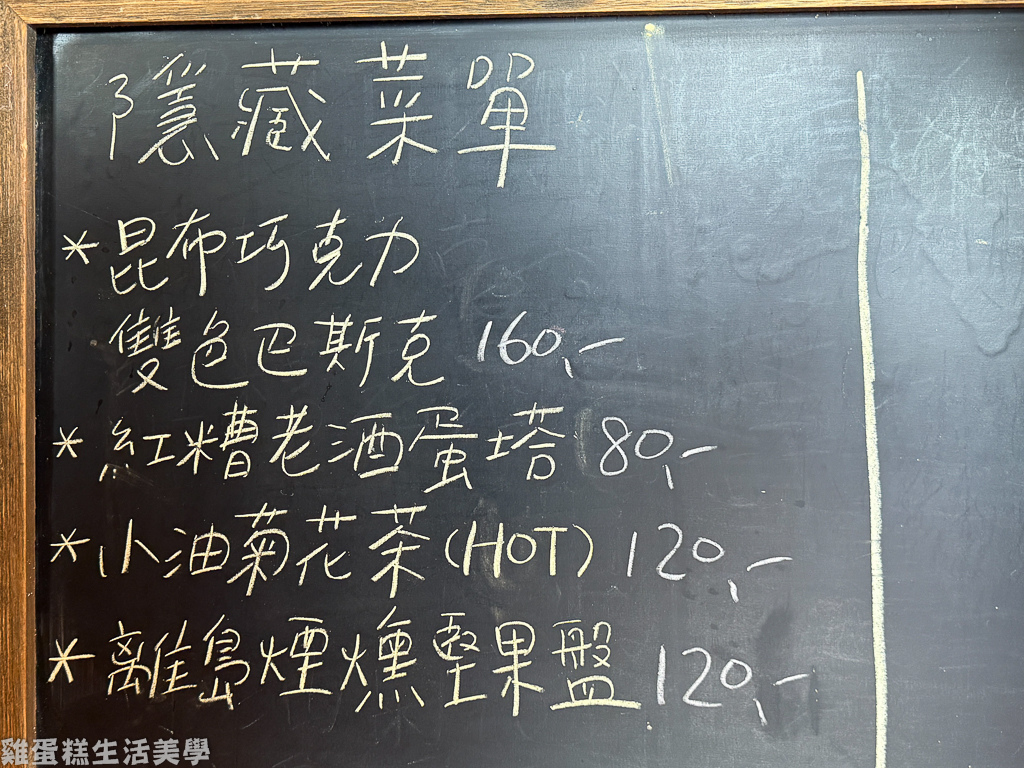 隱藏菜單
*昆布巧克力
雙色巴斯克 160,-
*紅糟老酒蛋塔 80,-
*小油菊花茶(HOT) 120,-
*離島煙燻堅果盤 120,-
雞蛋糕生活美學